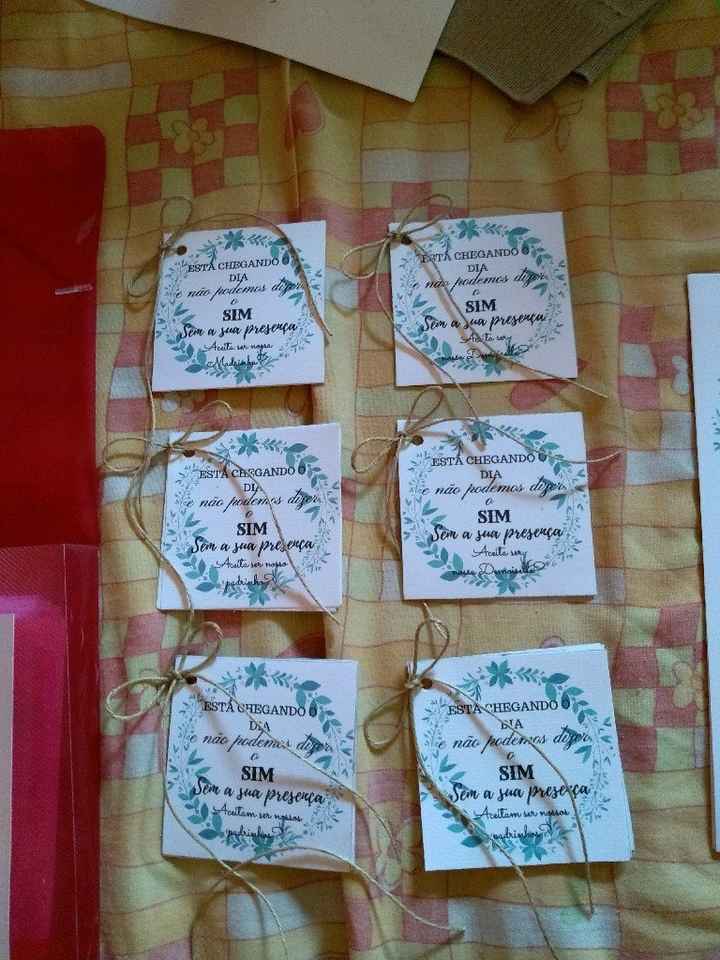 ESTÁ CHEGANDO O
DIA
e não podemos dizer
o
SIM
Sem a sua presença
Aceita ser nossa
Madrinha?
ESTÁ CHEGANDO O
DIA
e não podemos dizer
o
SIM
Sem a sua presença
Aceita ser
nossa Demoiselle?
ESTÁ CHEGANDO O
DIA
e não podemos dizer
o
SIM
Sem a sua presença
Aceita ser nosso
padrinho?
ESTÁ CHEGANDO O
DIA
e não podemos dizer
o
SIM
Sem a sua presença
Aceita ser
nossa Demoiselle?
ESTÁ CHEGANDO O
DIA
e não podemos dizer
o
SIM
Sem a sua presença
Aceitam ser nossos
padrinhos?
ESTÁ CHEGANDO O
DIA
e não podemos dizer
o
SIM
Sem a sua presença
Aceitam ser nossos
padrinhos?